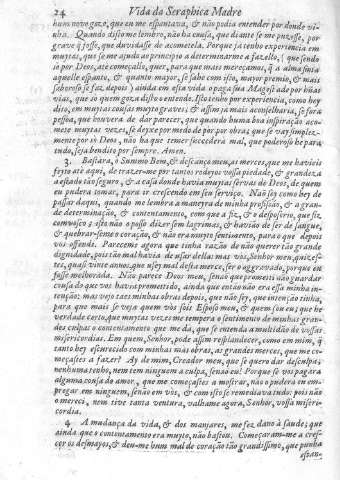 24 Vida da Seraphica Madre
hum novo gozo, que eu me espantava, & não podia entender por donde vi-
nha. Quando disto me lembro, não ha cousa, que diante se me puzesse, por
grave q̃ fosse, que duvidasse de acometela. Porque ja tenho experiencia em
muytas, que se me ajudo ao principio a determinarme a fazello, (que sendo
so por Deos, até começallo, quer, para que mais mereçamos, q̃ a alma sinta
aquelle espanto, & quanto mayor, se sahe com isto, mayor premio, & mais
saboroso se faz depois) ainda em esta vida o paga sua Magestade por húas
vias, que só quem goza disso o entende. Isto tenho por experiencia, como hey
dito, em muytas cousas muyto graves; & assim ja mais aconselharia, se fora
pessoa, que houvera de dar parecer, que quando hũma boa inspiração aco-
mete muytas vezes, se deyxe por medo de por por obra; que se vay simplez-
mente por só Deos, não ha que temer socederá mal, que poderoso he para
tudo, seja bendito por sempre. Amen.
3. Bastara, ò Summo Bem, & descanço meu, as merces, que me havieis
feyto até aqui, de trazer-me por tantos rodeyos vossa piedade, & grandeza
a estado tão seguro, & a casa donde havia muytas servas de Deos, de quem
eu pudera tomar, para ir crescendo em seu serviço. Não sey como hey de
passar daqui, quando me lembro a maneyra de minha profissão, & a gran-
de determinação, & contentamento, com que a fiz, & o desposorio, que fiz
comvosco; isto não o posso dizer sem lagrimas, & havião de ser de sangue,
& quebrar-seme o coração, & não era muyto sentimento, para o que depois
vos offendi. Pareceme agora que tinha razão de não querer tão grande
dignidade, pois tão mal havia de usar della: mas vós, Senhor meu, quizestes
ser, quasi vinte annos, que usey mal desta merce, ser o aggravado, porque eu
fosse melhorada. Não parece Deos meu, senão que prometi não guardar
cousa do que vos havia promettido, ainda que entonces não era essa minha in-
tenção: mas vejo taes minhas obras depois, que não sey, que intenção tinha,
para que mais se veja quem vós sois Esposo meu, & quem sou eu; que he
verdade certo, que muytas vezes me tempera o sentimento de minhas gran-
des culpas o contentamento que me dá, que se entenda a multidão de vossas
misericordias. Em quem, Senhor, pode assim resplandecer, como em mim, q̃
tanto hey escurecido com minhas más obras, as grandes merces, que me co-
meçastes a fazer? Ay de mim, Creador meu, que se quero dar desculpa,
nenhuma tenho, nem tem ninguem a culpa, senão eu! Porque se vos pagara
alguma cousa do amor, que me começastes a mostrar, não o pudera eu em-
pregar em ninguem, senão em vós, & com isto se remediava tudo: pois não
o mereci, nem tive tanta ventura, valhame agora, Senhor, vossa miseri-
cordia.
4. A mudança da vida, & dos manjares, me fez dano à saude; que
ainda que o contentamento era muyto, não bastou. Começaram-me a cres-
cer os desmayos, & deu-me hum mal de coração tão grandissimo, que punha
espan-